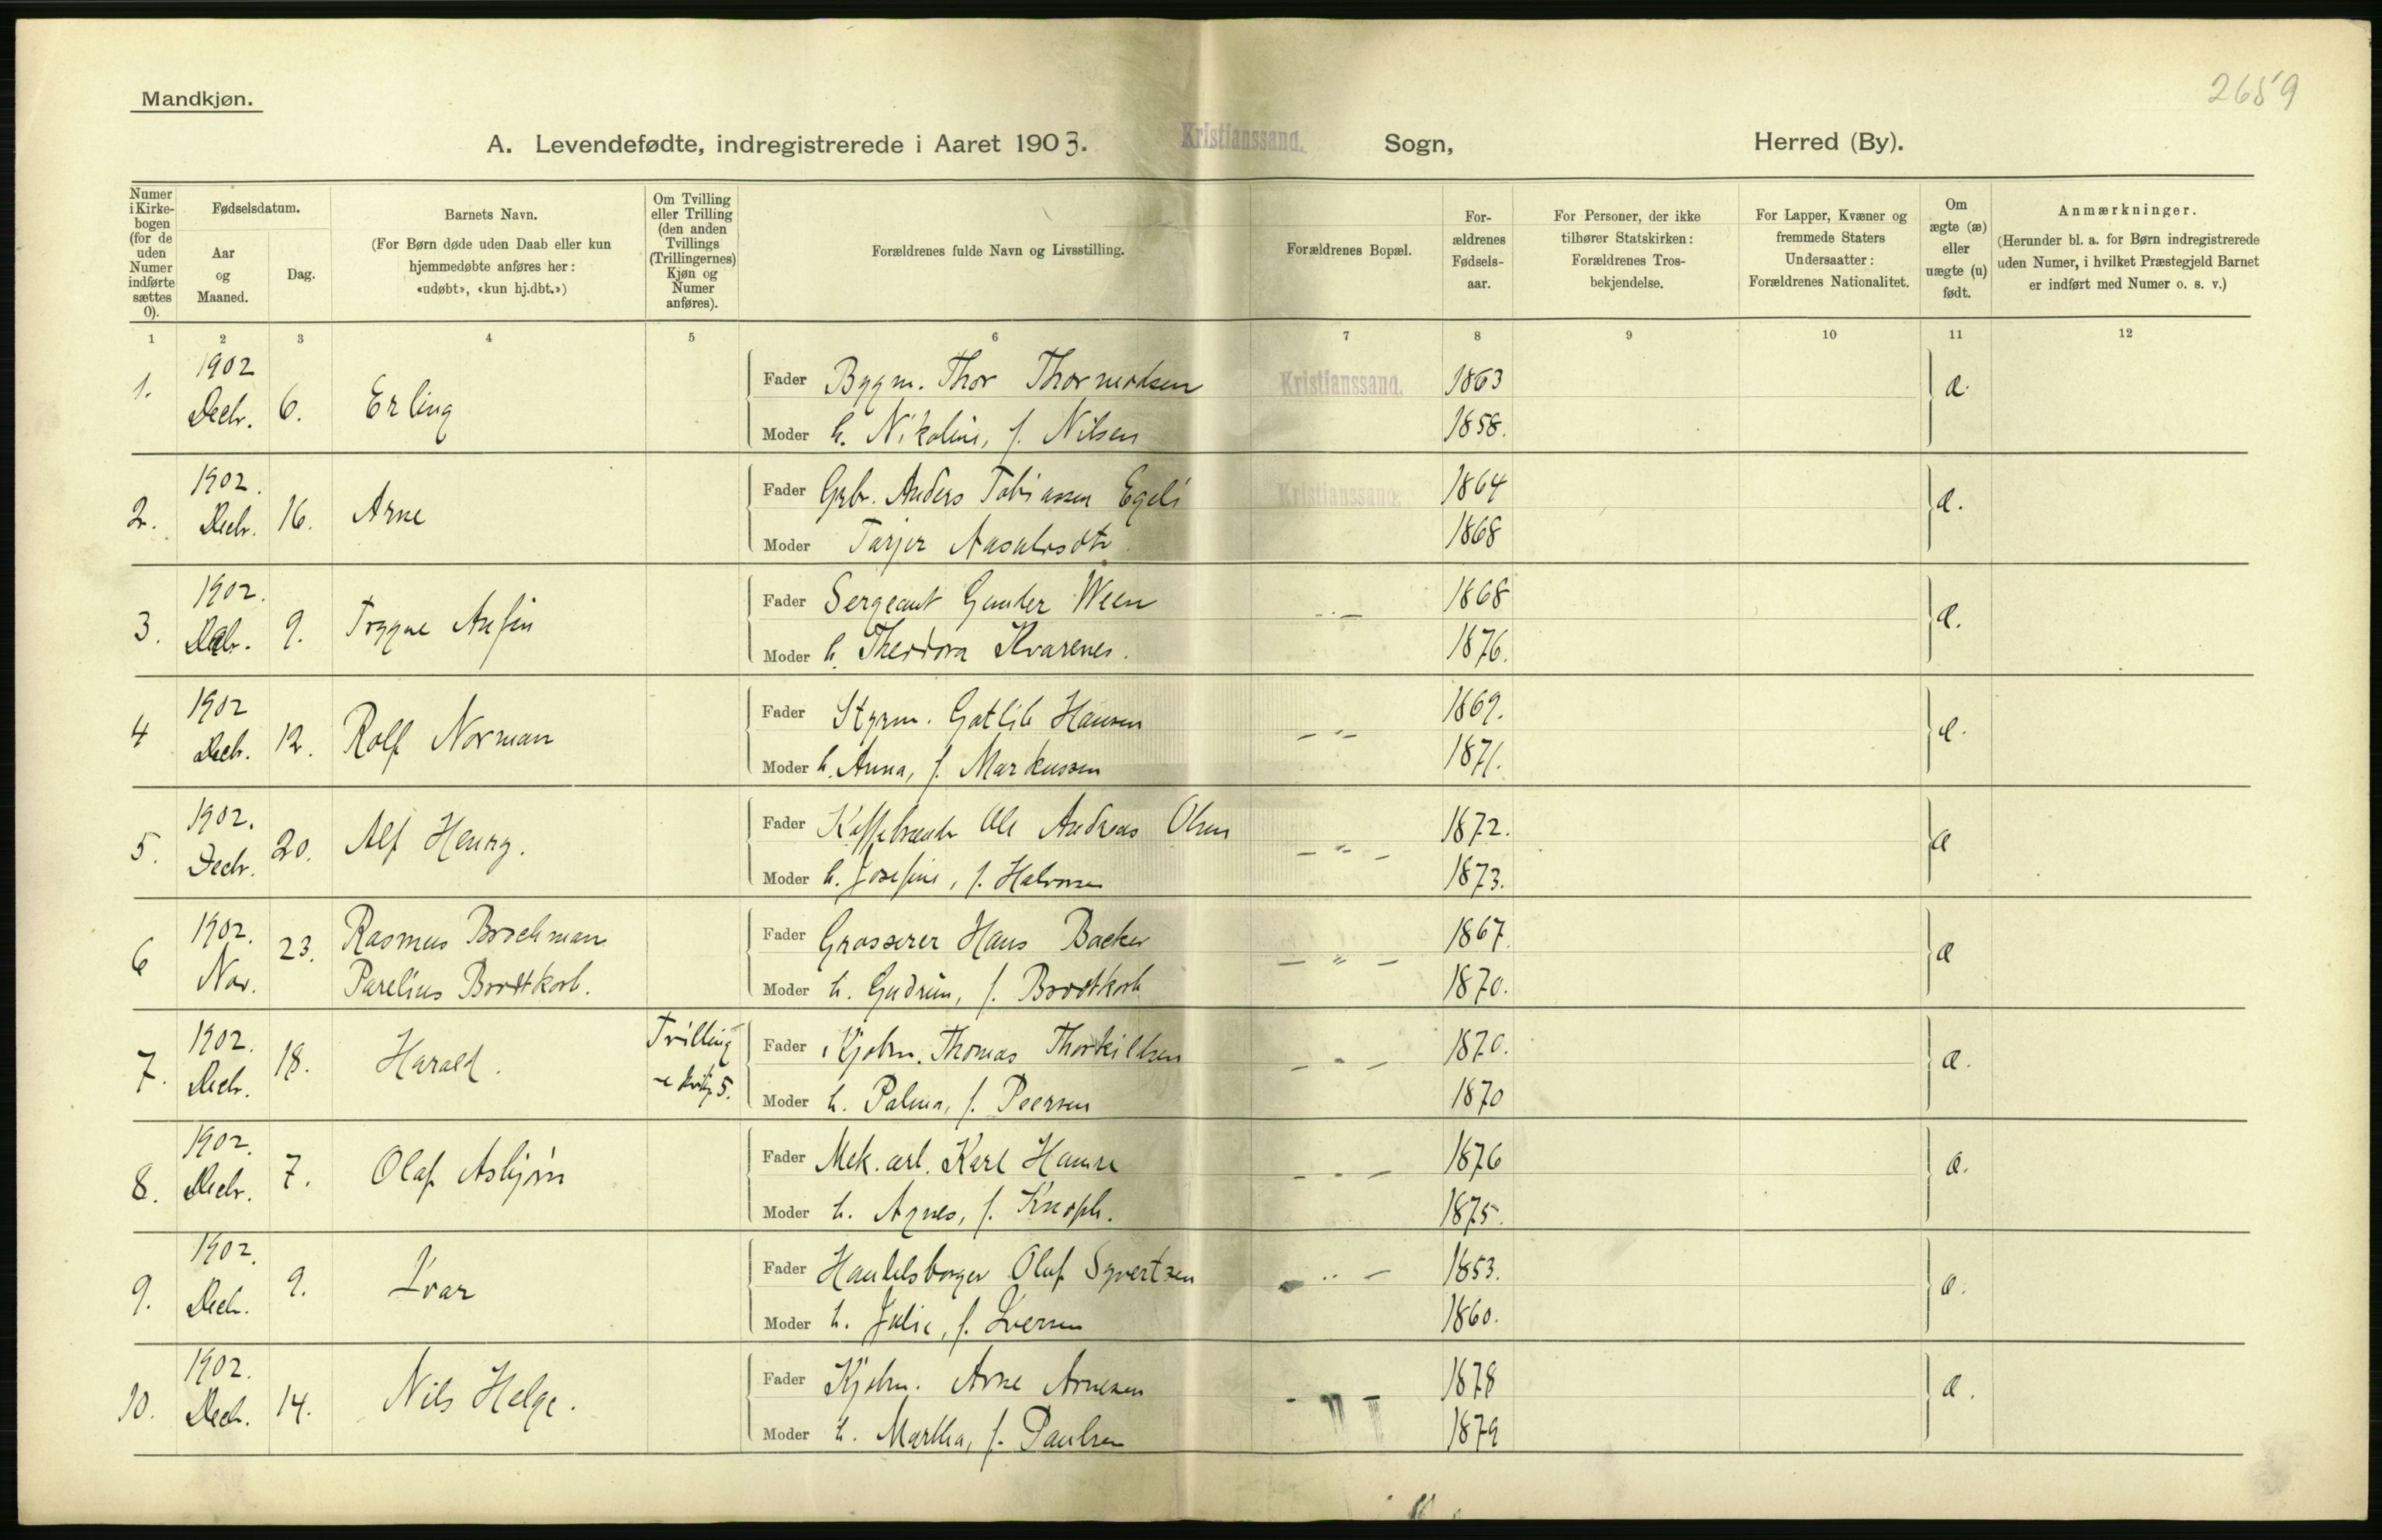 2659
Mandkjøn.
A. Levendefødte, indregistrerede i Aaret 1903. Kristianssand. Sogn, Herred (By).
Numer i Kirkebogen (for de uden Numer indførte sættes 0).
Fødselsdatum.
Aar og Maaned.
Dag.
Barnets Navn.
(For Børn døde uden Daab eller kun hjemmedøbte anføres her: «udøbt», «kun hj.dbt.»)
Om Tvilling eller Trilling (den anden Tvillings (Trillingernes) Kjøn og Numer anføres).
Forældrenes fulde Navn og Livsstilling.
Forældrenes Bopæl.
For-ældrenes Fødsels-aar.
For Personer, der ikke tilhører Statskirken: Forældrenes Tros-bekjendelse.
For Lapper, Kvæner og fremmede Staters Undersaatter: Forældrenes Nationalitet.
Om ægte (æ) eller uægte (u) født.
Anmærkninger.
(Herunder bl. a. for Børn indregistrerede uden Numer, i hvilket Præstegjeld Barnet er indført med Numer o. s. v.)
1 2 3 4 5 6 7 8 9 10 11 12
1. 1902 Decbr. 6. Erling Fader Bygm. Thor Kristianssand. 1863 æ.
Moder h. Nikoline, f. Nilsen 1858.
2. 1902. Decbr. 16. Arne Fader Anders Tobiassen Egeli Kristianssand. 1864 æ.
Moder Tarjer 1868
3. 1902. Decbr. 9. Trygve Fader Sergeant Gunder Ween - " - 1868 æ.
Moder h. Theodora Kvarenes. 1876.
4 1902 Decbr. 12. Rolf Norman Fader Styrm. Gotlib Hansen - " - 1869. æ.
Moder h. Anna, f. Markussen 1871.
5. 1902. Decbr. 20. Alf Henry. Fader Ole Andreas Olsen - " - 1872. æ
Moder h. Josefine, f. Halvorsen 1873.
6 1902. Nov. 23. Rasmus Brochman Parelius Brodtkorb. Fader Grosserer Hans Backer - " - 1867. æ
Moder h. Gudrun, f. Brodtkorb 1870.
7. 1902. Decbr. 18. Harald. Tvilling 5. Fader Kjøbm. Thomas Thorkildsen - " - 1870. æ.
Moder h. Palma, f. Peersen 1870
8. 1902. Decbr. 7. Olaf Asbjørn Fader Mek. arb. Karl Hamre - " - 1876 æ.
Moder h. Agnes, f. Knoph. 1875.
9. 1902. Decb. 9. Ivar Fader Handelsborger Oluf Syvertsen - " - 1853. æ.
Moder h. Julie, f. Iversen 1860.
10. 1902. Decb. 14. Nils Helge. Fader Kjøbm. Arne Arnesen - " - 1878 æ.
Moder h. Martha, f. Paulsen 1879